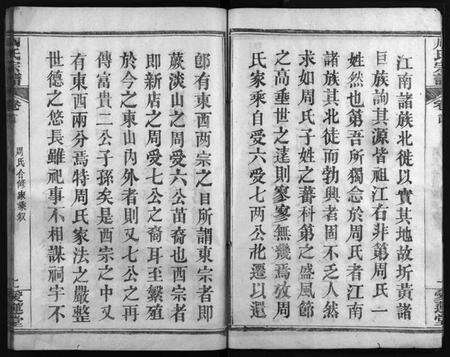 周氏宗譜
卷首
江南諸族北徙以實其地故圻黃諸
巨族詢其源皆祖江右非第周氏一
姓然也第吾所獨念於周氏者江南
諸族其北徙而勃興者固不乏人然
求如周氏子姓之蕃科第之盛風節
之高垂世之遠則寥寥無幾焉攷周
氏家乘自受六受七兩公北還以還
愛蓮堂
周氏宗譜
卷首
周氏合修家乘叙
郎有東西两宗之目所謂東宗者即
蕨淡山之周受六公苗裔也西宗者
即新店之周受七公之裔耳至繁殖
於今之東山内外者則又七公之再
傳富貴二公子孫矣是西宗之中又
有東西兩分焉特周氏家法之嚴整
世德之悠長雖祀事不相謀祠宇不
愛蓮堂